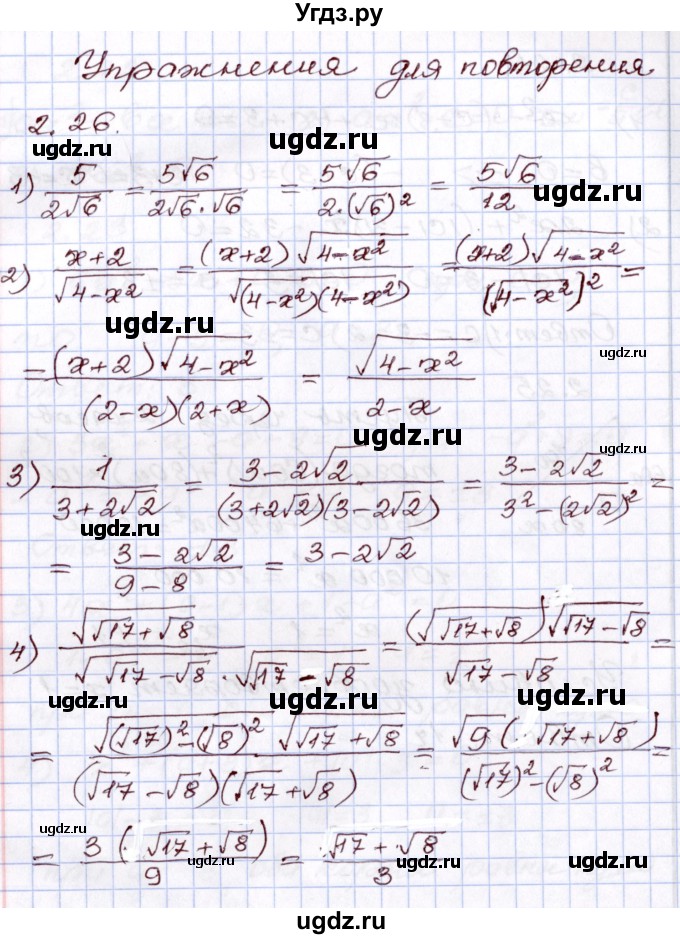 Угдз.ру
Упражнения для повторения
2.26.
ugdz.ru ugdz.ru
1) 5/(2√6) = 5√6/(2√6·√6) = 5√6/(2·(√6)²) = 5√6/12
ugdz.ru
ugdz.ru
2) (x+2)/√(4-x²) = (x+2)√(4-x²)/√((4-x²)(4-x²)) = (x+2)√(4-x²)/(√(4-x²))² =
ugdz.ru
ugdz.ru
= (x+2)√(4-x²)/((2-x)(2+x)) = √(4-x²)/(2-x)
ugdz.ru
3) 1/(3+2√2) = (3-2√2)/((3+2√2)(3-2√2)) = (3-2√2)/(3²-(2√2)²) =
ugdz.ru
= (3-2√2)/(9-8) = 3-2√2
ugdz.ru
ugdz.ru
4) √(√17+√8)/√(√17-√8) · √(√17-√8) = (√(√17+√8))√(√17-√8)/(√17-√8) =
ugdz.ru
ugdz.ru
= √((√17)²-(√8)²) √(√17+√8)/((√17-√8)(√17+√8)) = √9(√17+√8)/((√17)²-(√8)²) =
ugdz.ru
ugdz.ru
= 3(√17+√8)/9 = (√17+√8)/3
ugdz.ru
ugdz.ru
ugdz.ru
ugdz.ru